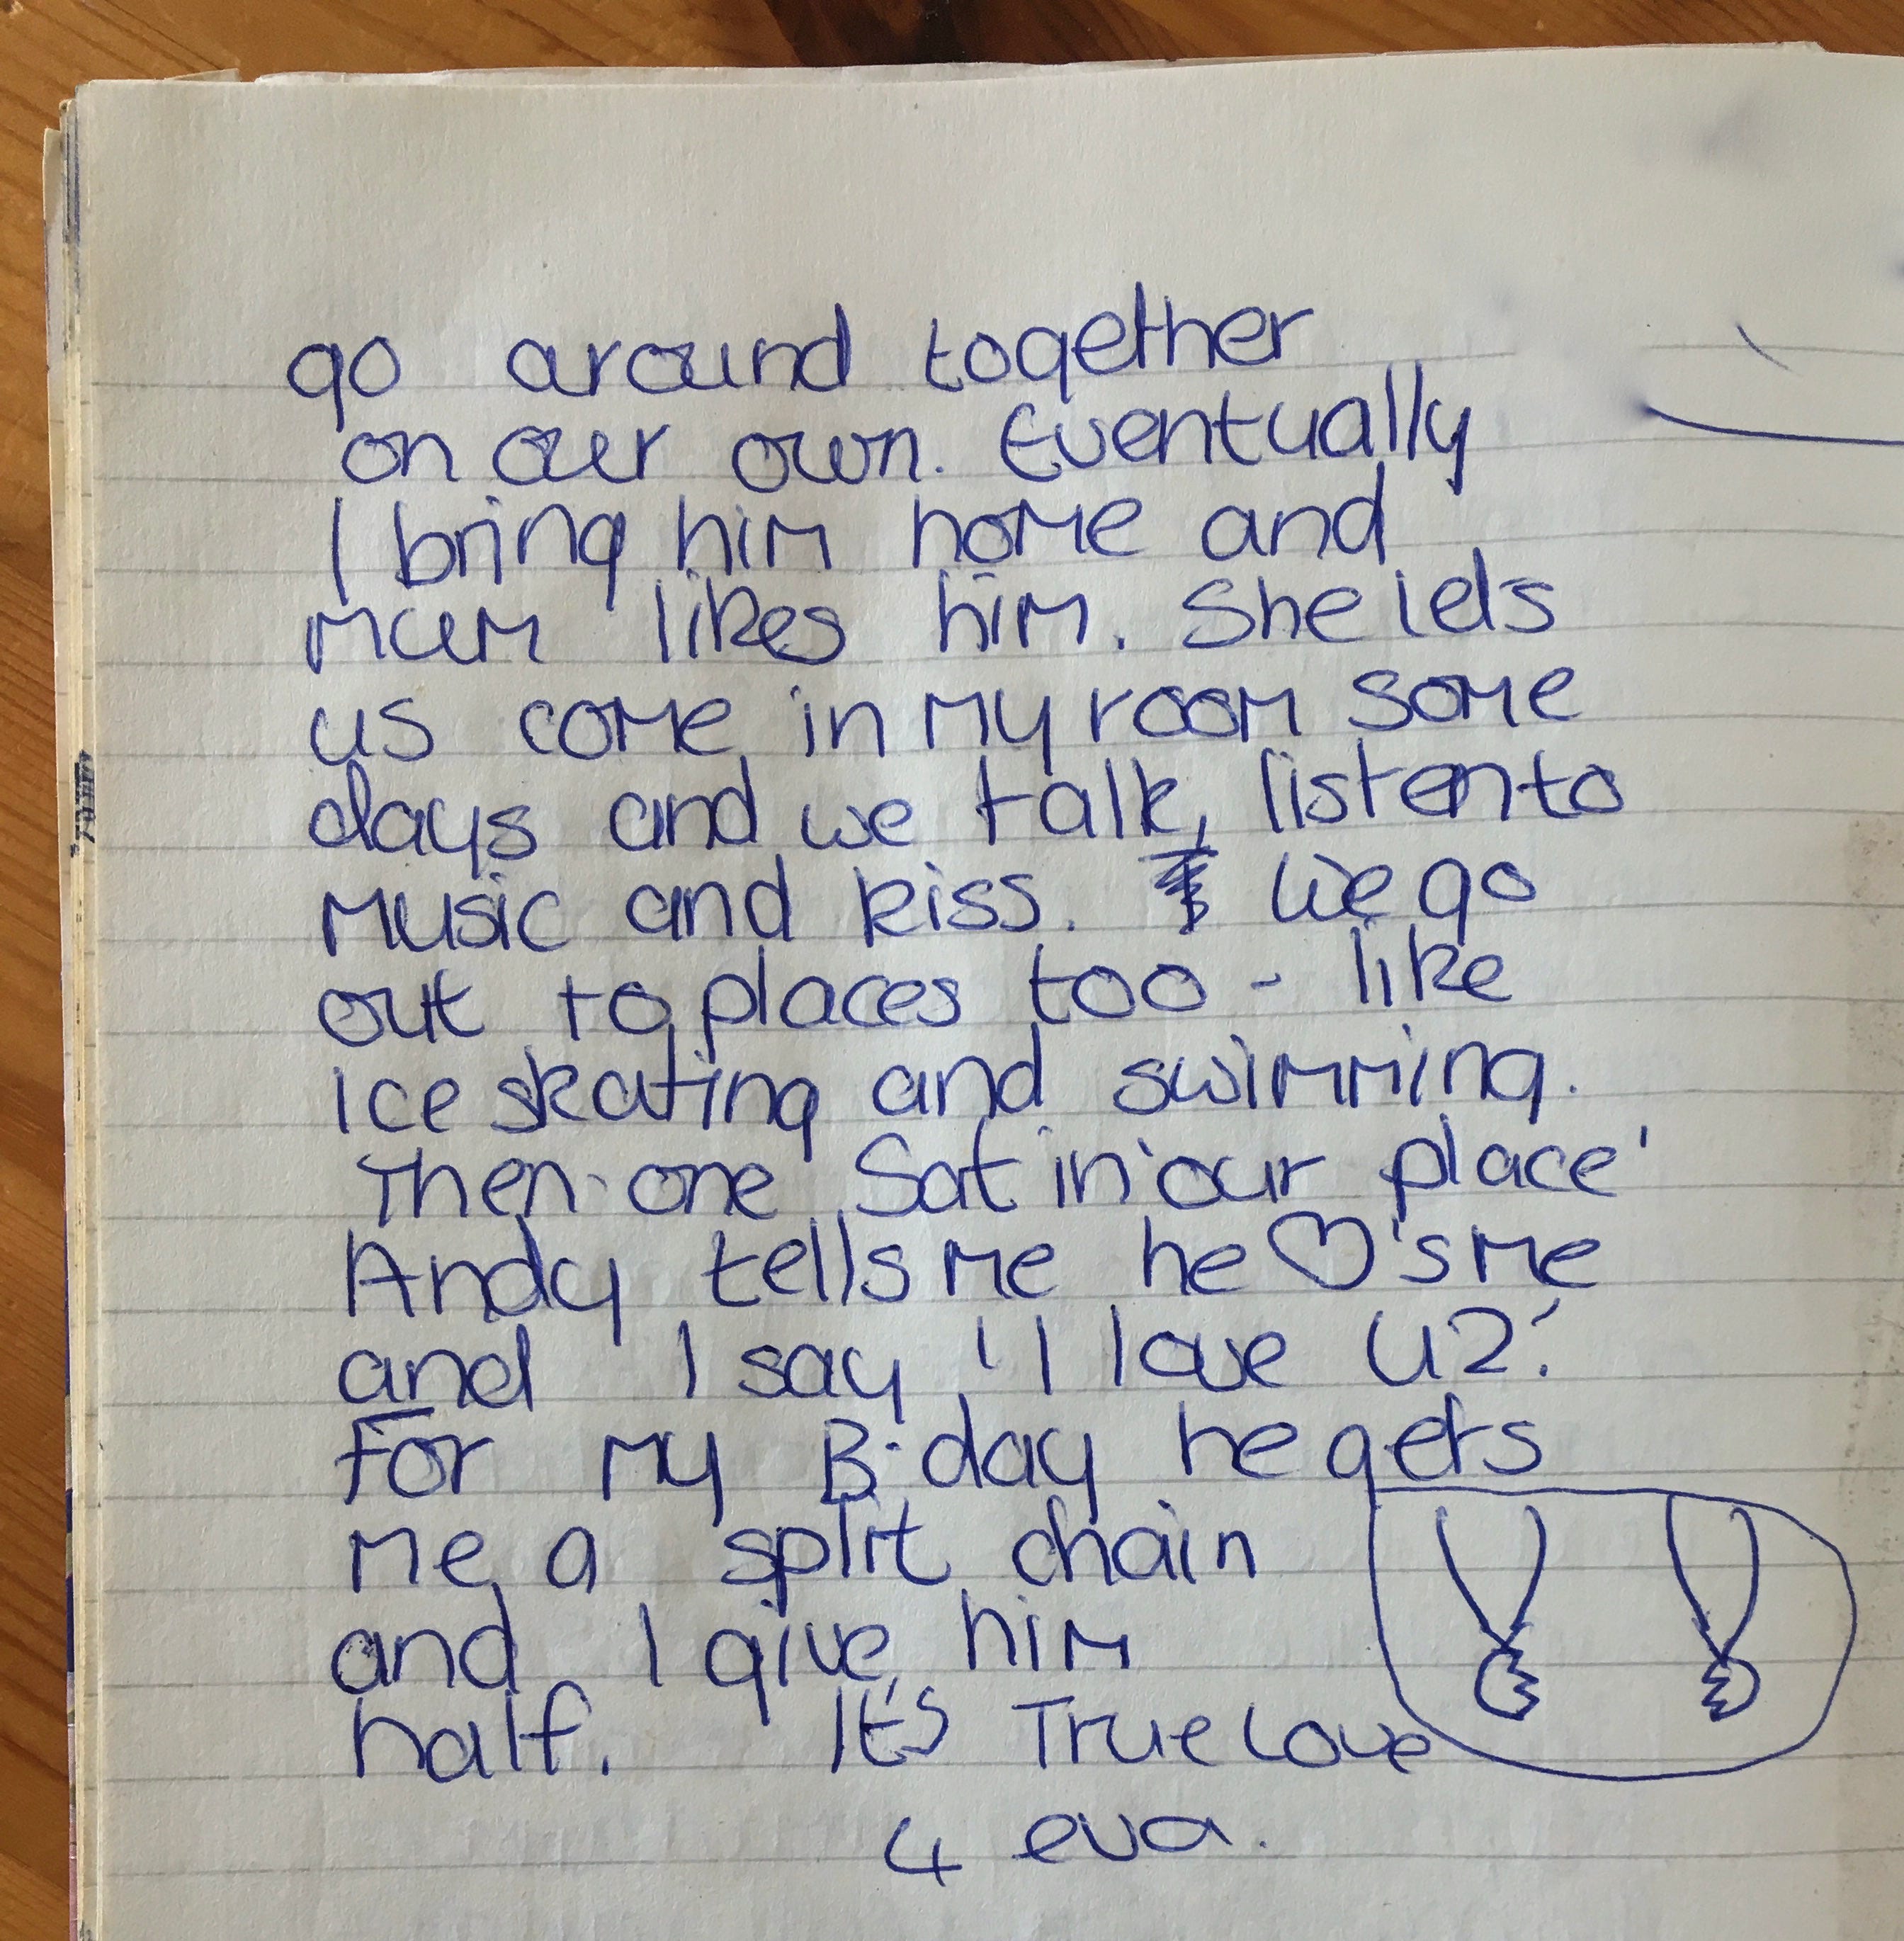 go around together
on our own. Eventually
I bring him home and
mum likes him. She lets
us come in my room some
days and we talk, listen to
music and kiss. We go
out to places too - like
ice skating and swimming.
Then one Sat in 'our place'
Andy tells me he ♡'s me
and I say 'I love U2'.
For my B-day he gets
me a split chain
and I give him
half. It's True Love
4 eva.